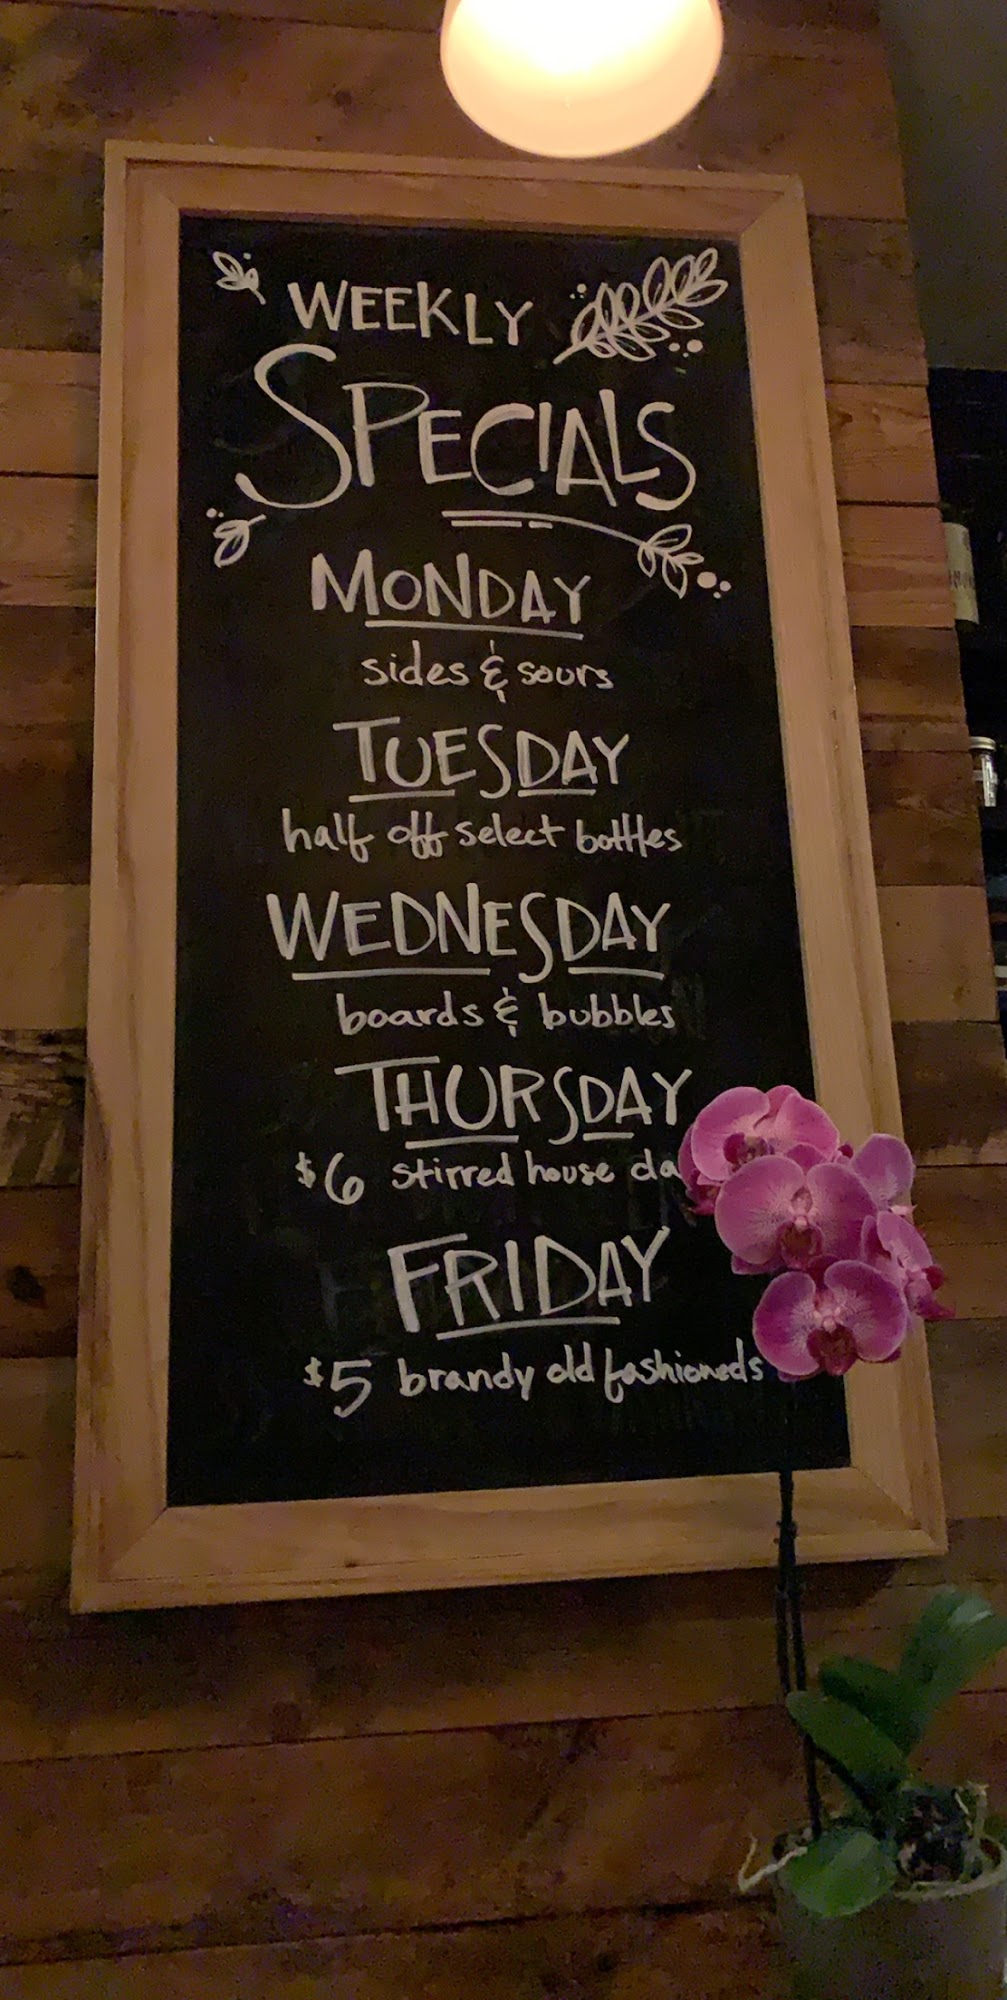 WEEKLY
SPECIALS
MONDAY
sides & sours
TUESDAY
half off select bottles
WEDNESDAY
boards & bubbles
THURSDAY
$6 stirred house da
FRIDAY
$5 brandy old fashioneds